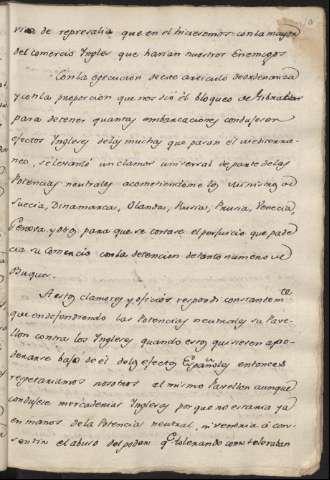 viva de represalia que en el hiciesemos con la mayor
del comercio Ingles que harian nuestros Enemigos.
Con la egecucion de este articulo de ordenanza
y con la proporcion que nos dió el bloqueo de Gibraltar
para detener quantas embarcaciones condugeron
efectos Ingleses de los muchos que pasan el mediterra-
neo, se levantó un clamor universal de parte de las
Potencias neutrales acometiendome los ministros de
Suecia, Dinamarca, Olanda, Rusia, Prusia, Venecia
Genova y otros para que se cortase el perjuicio que pade-
cia su Comercio con la detencion de tanto numero de
Buques.
A estos clamores y oficios respondi constantem.te
que en defendiendo las Potencias neutrales su Pave-
llon contra los Ingleses quando estos quisiesen apo-
derarse bajo de él de los efectos Españoles entonces
respetariamos nosotros el mismo Pavellon aunque
condujese mercaderias Inglesas por que no estaria ya
en manos de la Potencia neutral, ni vendria á con-
sentir el abuso del poder q.e tolerando como toleraban